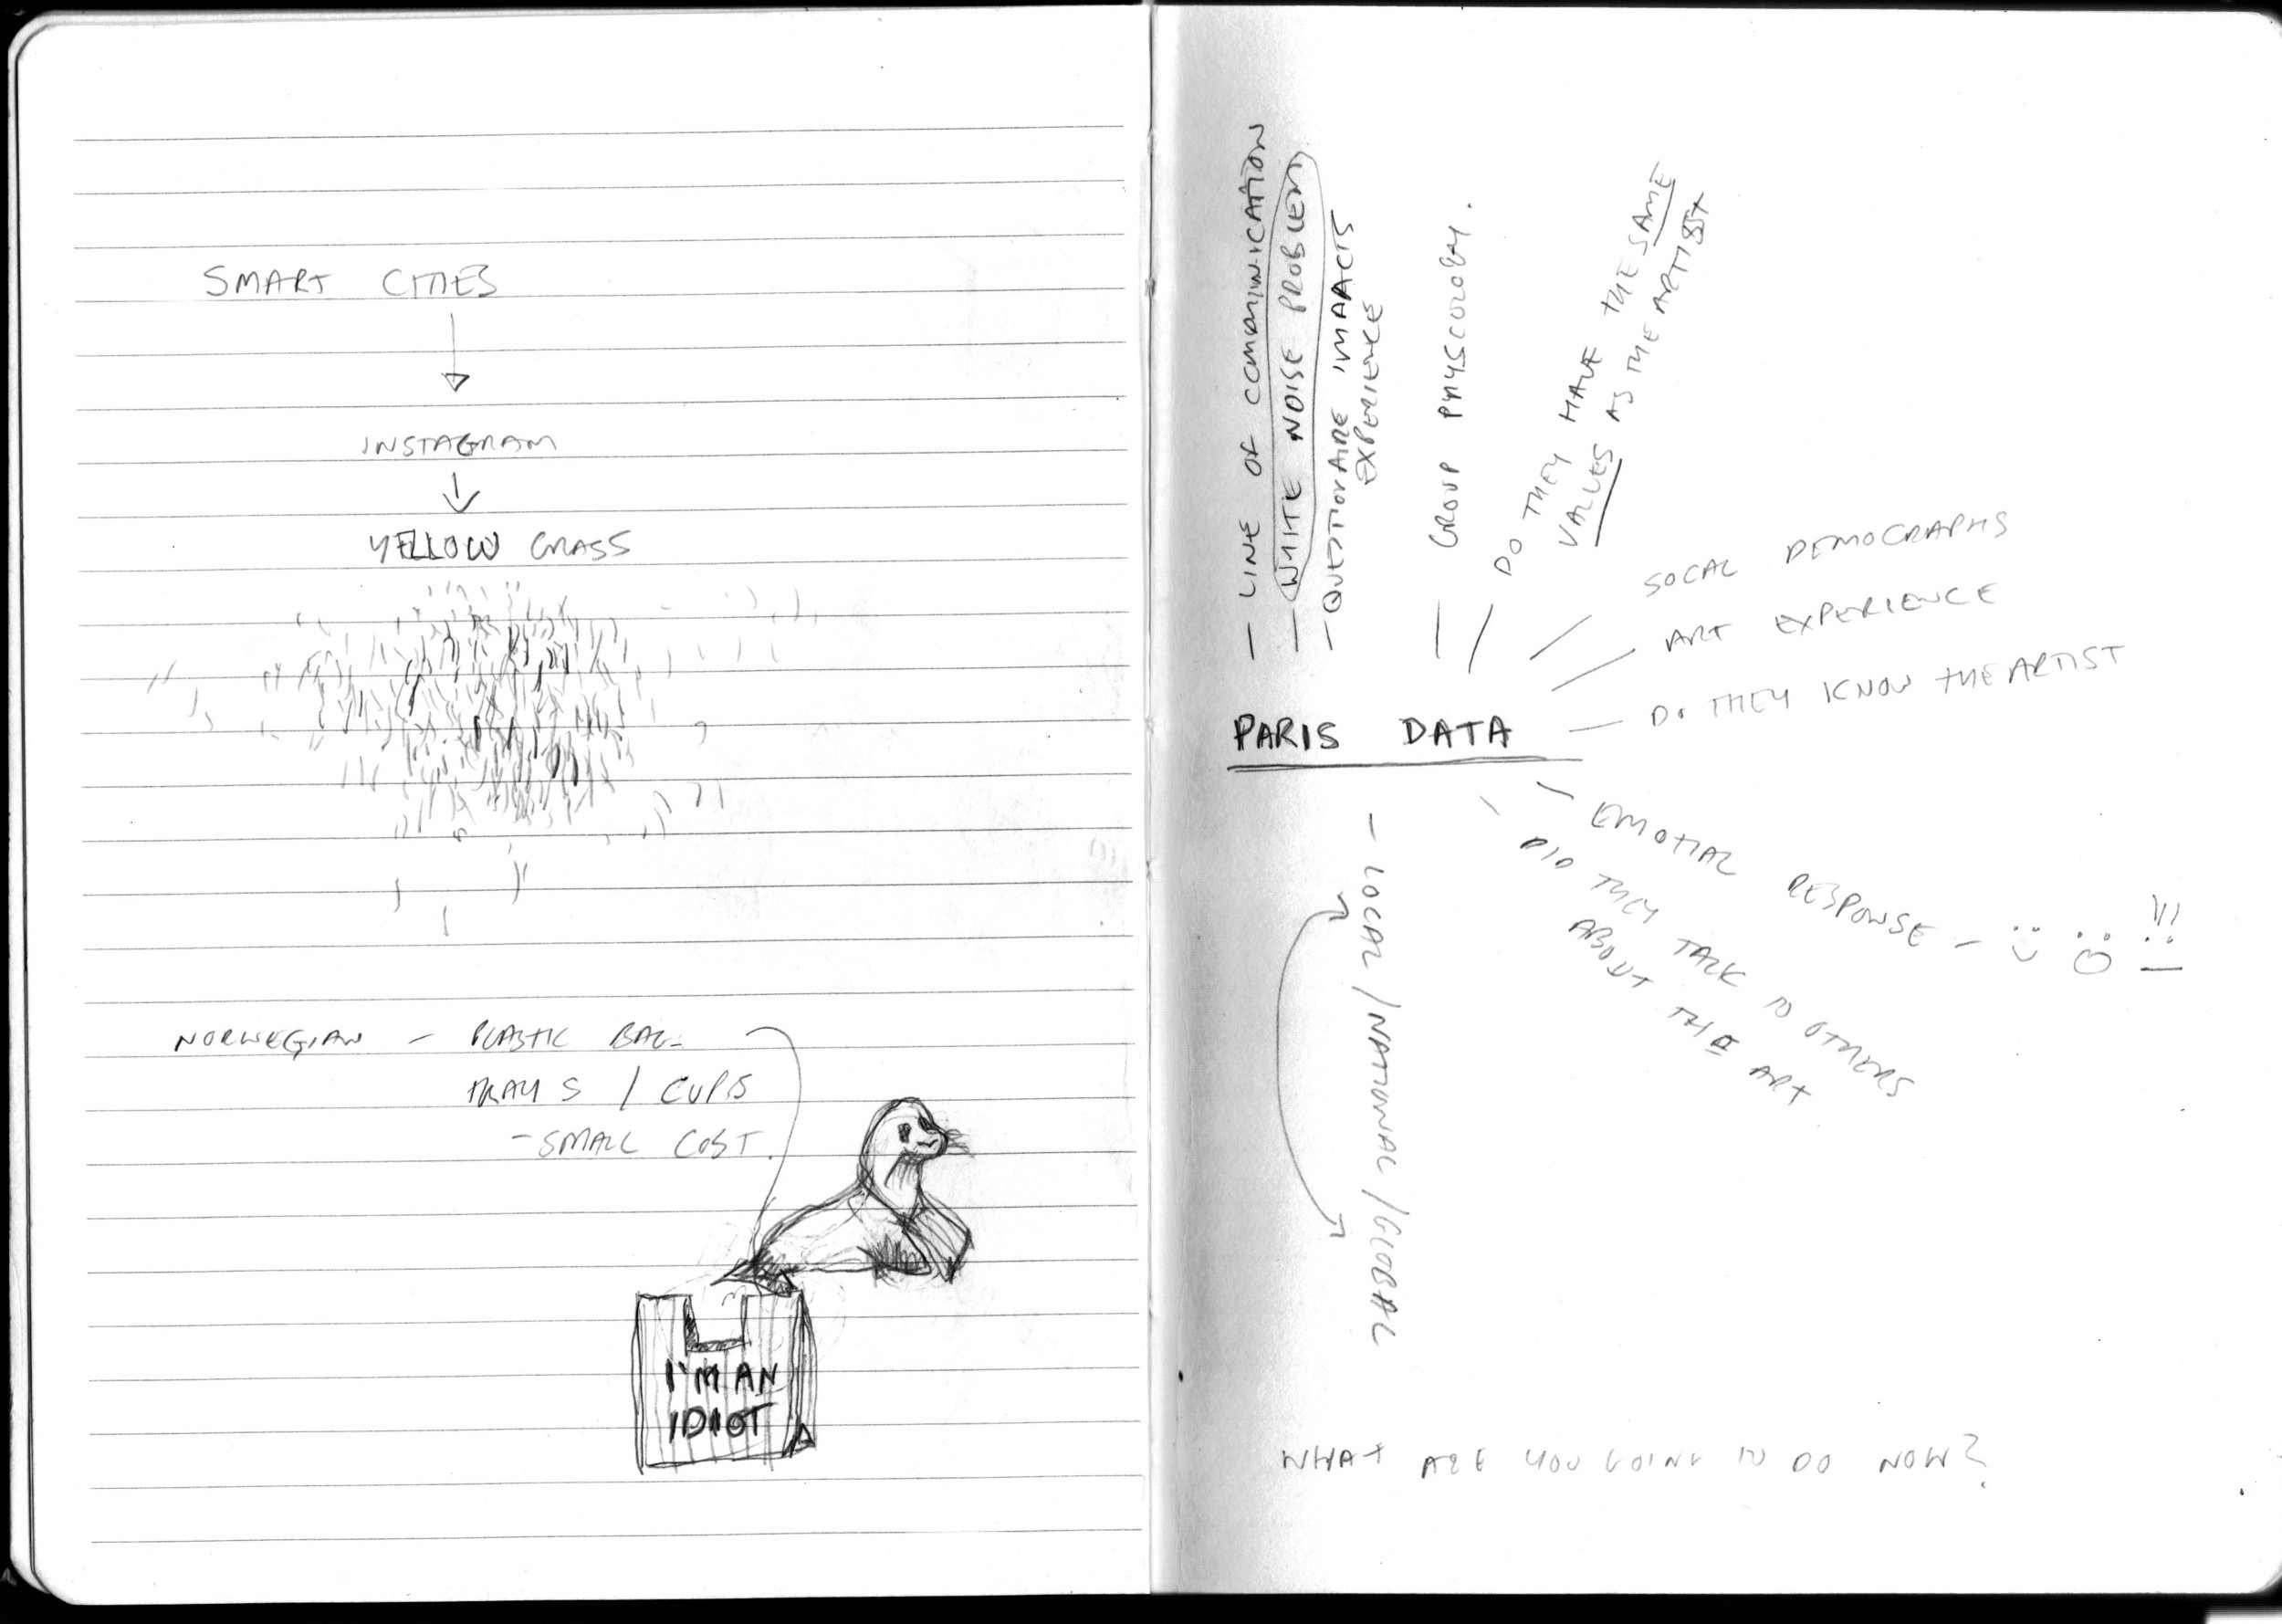 SMART CITIES
INSTAGRAM
YELLOW GRASS
NORWEGIAN - PLASTIC BAG
TRAYS / CUPS
- SMALL COST.
I'M AN
IDIOT
- LINE OF COMMUNICATION
- WHITE NOISE PROBLEM
- QUESTIONAIRE IMPACTS
EXPERIENCE
GROUP PHYSCOLOGY.
DO THEY HAVE THE SAME
VALUES AS THE ARTIST
SOCAL DEMOGRAPHS
ART EXPERIENCE
DO THEY KNOW THE ARTIST
PARIS DATA
EMOTIAL RESPONSE -
DID THEY TALK TO OTHERS
ABOUT THE ART
- LOCAL / NATIONAL / GLOBAL
WHAT ARE YOU GOING TO DO NOW?